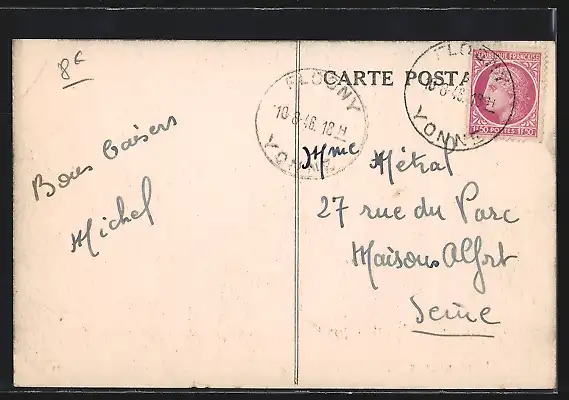 8€
Bons baisers
Michel
CARTE POSTA
FLOGNY
10-8-46. 18 H
YONNE
FLOGNY
10-8-46. 18 H
YONNE
RÉPUBLIQUE FRANÇAISE
1F50 POSTES 1F50
Mme Métral
27 rue du Parc
Maisons Alfort
Seine